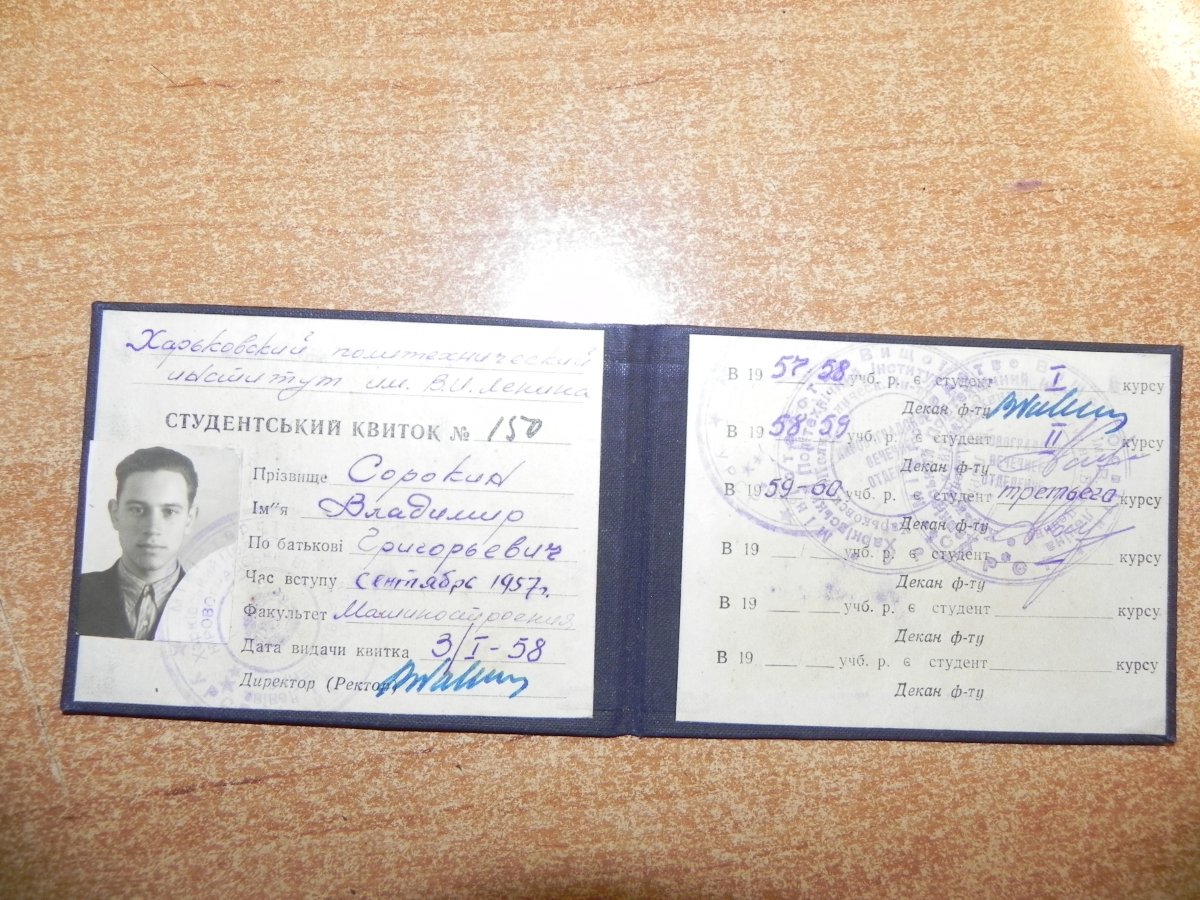 Харьковский политехнический
институт им. В.И. Ленина
СТУДЕНТСЬКИЙ КВИТОК № 150
Прізвище Сорокин
Ім"я Владимир
По батькові Григорьевич
Час вступу сентябрь 1957г.
Факультет Машиностроения
Дата видачи квитка 3/I-58
Директор (Ректор)
В 19 57/58 учб. р. є студент I курсу
Декан ф-ту
В 19 58-59 учб. р. є студент II курсу
Декан ф-ту
В 19 59-60 учб. р. є студент третьего курсу
Декан ф-ту
В 19 __/__ учб. р. є студент курсу
Декан ф-ту
В 19 __/__ учб. р. є студент курсу
Декан ф-ту
В 19 __/__ учб. р. є студент курсу
Декан ф-ту